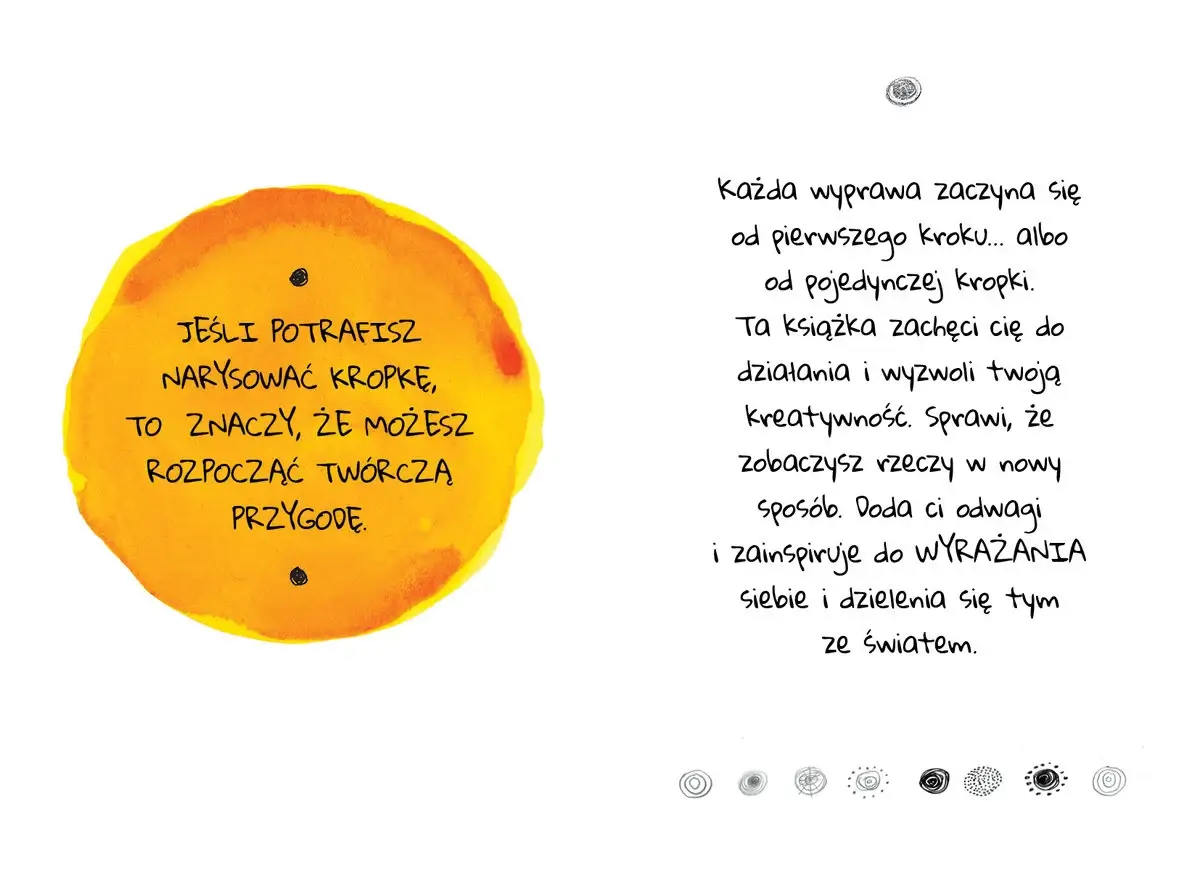 JEŚLI POTRAFISZ
NARYSOWAĆ KROPKĘ,
TO ZNACZY, ŻE MOŻESZ
ROZPOCZĄĆ TWÓRCZĄ
PRZYGODĘ.
Każda wyprawa zaczyna się
od pierwszego kroku... albo
od pojedynczej kropki.
Ta książka zachęci cię do
działania i wyzwoli twoją
kreatywność. Sprawi, że
zobaczysz rzeczy w nowy
sposób. Doda ci odwagi
i zainspiruje do WYRAŻANIA
siebie i dzielenia się tym
ze światem.